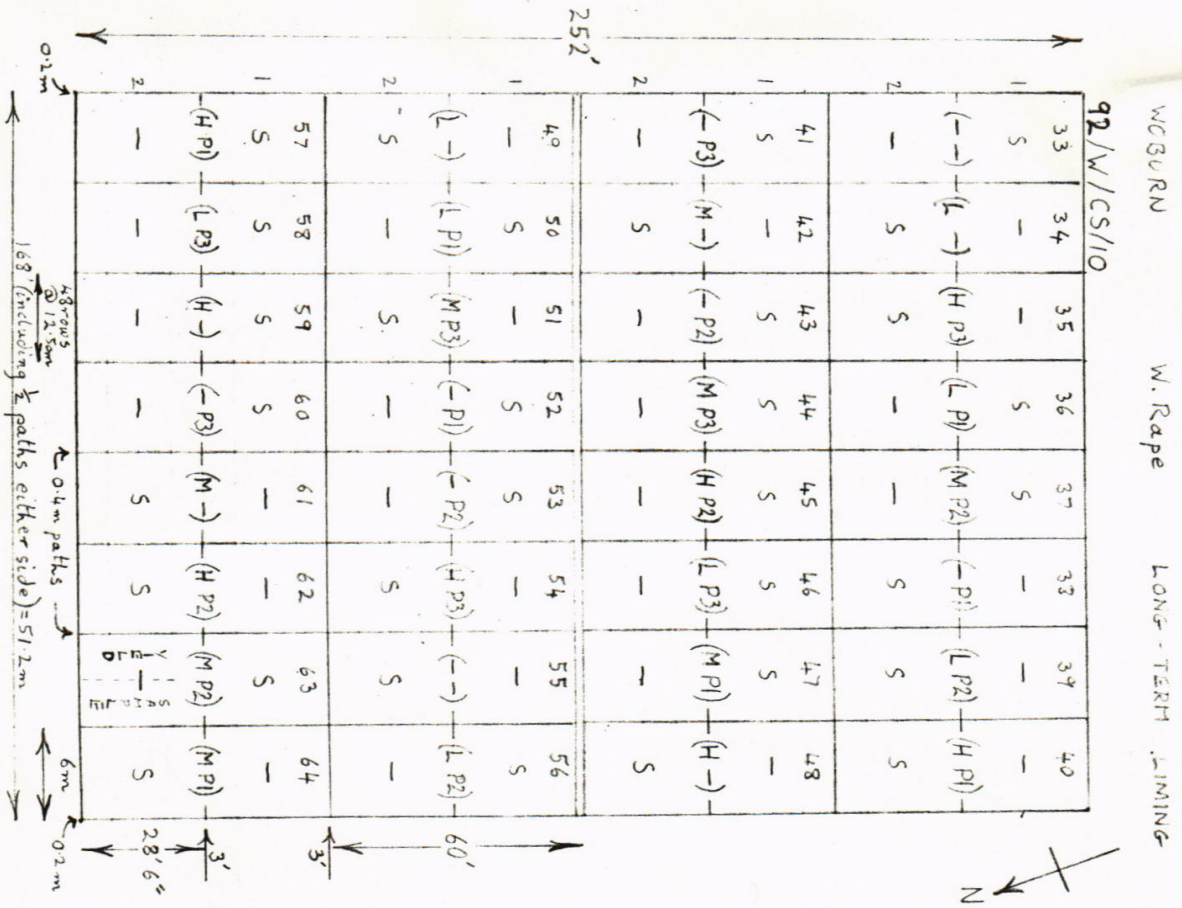 WOBURN W. Rape LONG-TERM LIMING
92/W/CS/10
33 34 35 36 37 38 39 40
1 S – – S S – – –
(– –) (L –) (H P3) (L P1) (M P2) (– P1) (L P2) (H P1)
2 – S S – – S S S
41 42 43 44 45 46 47 48
1 S – S S S S S –
(– P3) (M –) (– P2) (M P3) (H P2) (L P3) (M P1) (H –)
2 – S – – – – – S
252'
N
49 50 51 52 53 54 55 56
1 – S – S S – – S
(L –) (L P1) (M P3) (– P1) (– P2) (H P3) (– –) (L P2)
2 S – S – – S S –
60'
57 58 59 60 61 62 63 64
1 S S S S – – S –
3'
(H P1) (L P3) (H –) (– P3) (M –) (H P2) (M P2) (M P1)
3'
2 – – – – S S – S
YIELD SAMPLE
28'6"
0.2m
48 rows
@ 12.5cm
0.4m paths
6m
0.2m
168' (including ½ paths either side) = 51.2m